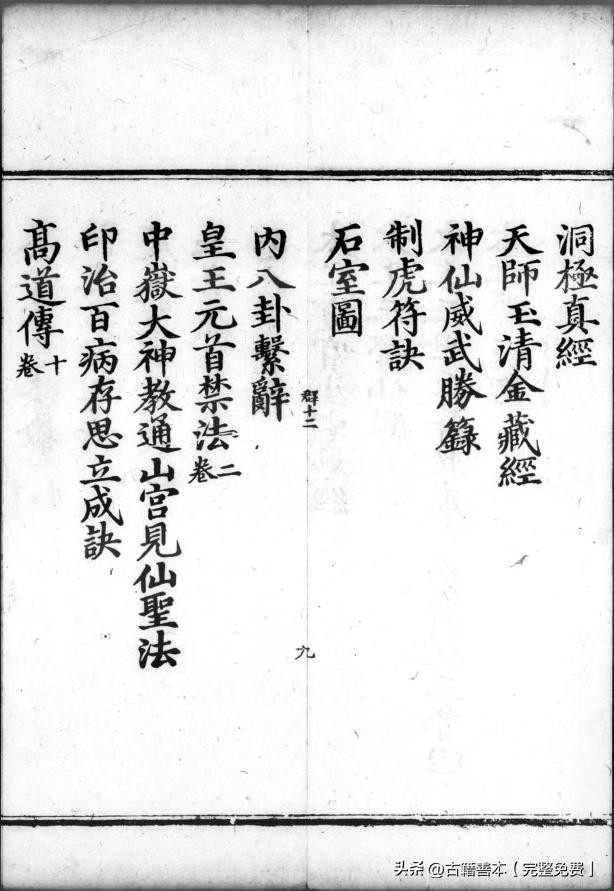 洞極真經
天師玉清金藏經
神仙威武勝籙
制虎符訣
石室圖
群十二
九
內八卦繫辭
皇王元首禁法二卷
中嶽大神教通山宮見仙聖法
印治百病存思立成訣
髙道傳十卷
头条@古籍善本【完整免费】